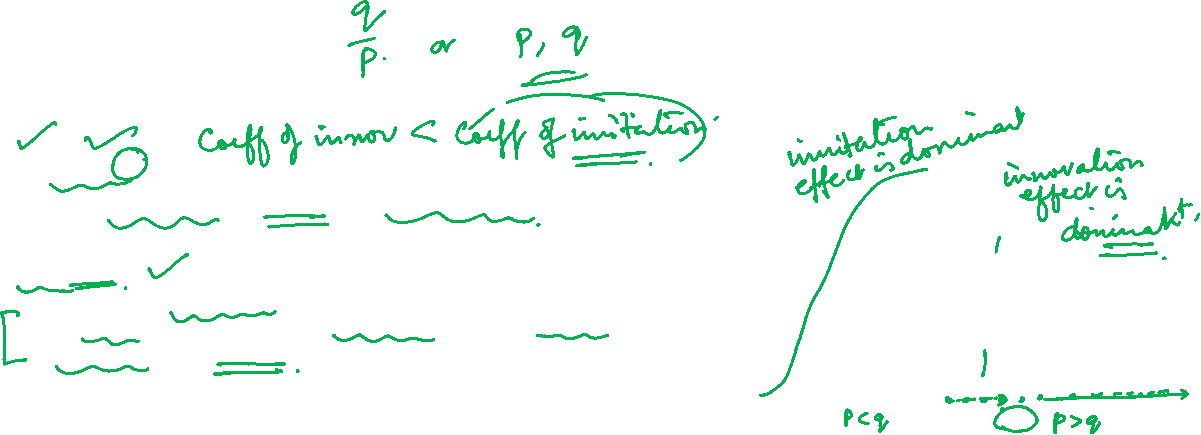 q/p. or p, q
Coeff of innov < Coeff of imitation.
imitation
effect is dominant
innovation
effect is
dominant.
p<q
p>q